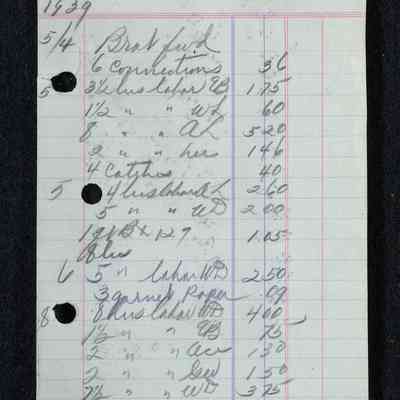 1939
5/4 Brot fwd
6 Connections 36
5 3½ hrs labor WB 1.75
1½ " " WL 60
8 " " AL 5 20
2 " " hers 1 46
4 Catches 40
5 4 hrs labor AL 2 60
5 " " WD 2 00
1 9 1.05
8 hrs
6 5 " labor WD 2 50
3 garnet Paper .09
8 8 hrs labor WD 4 00
1½ " " WB 75
2 " " Ace 1 30
2 " " Geo 1 50
7½ " " WD 3 75